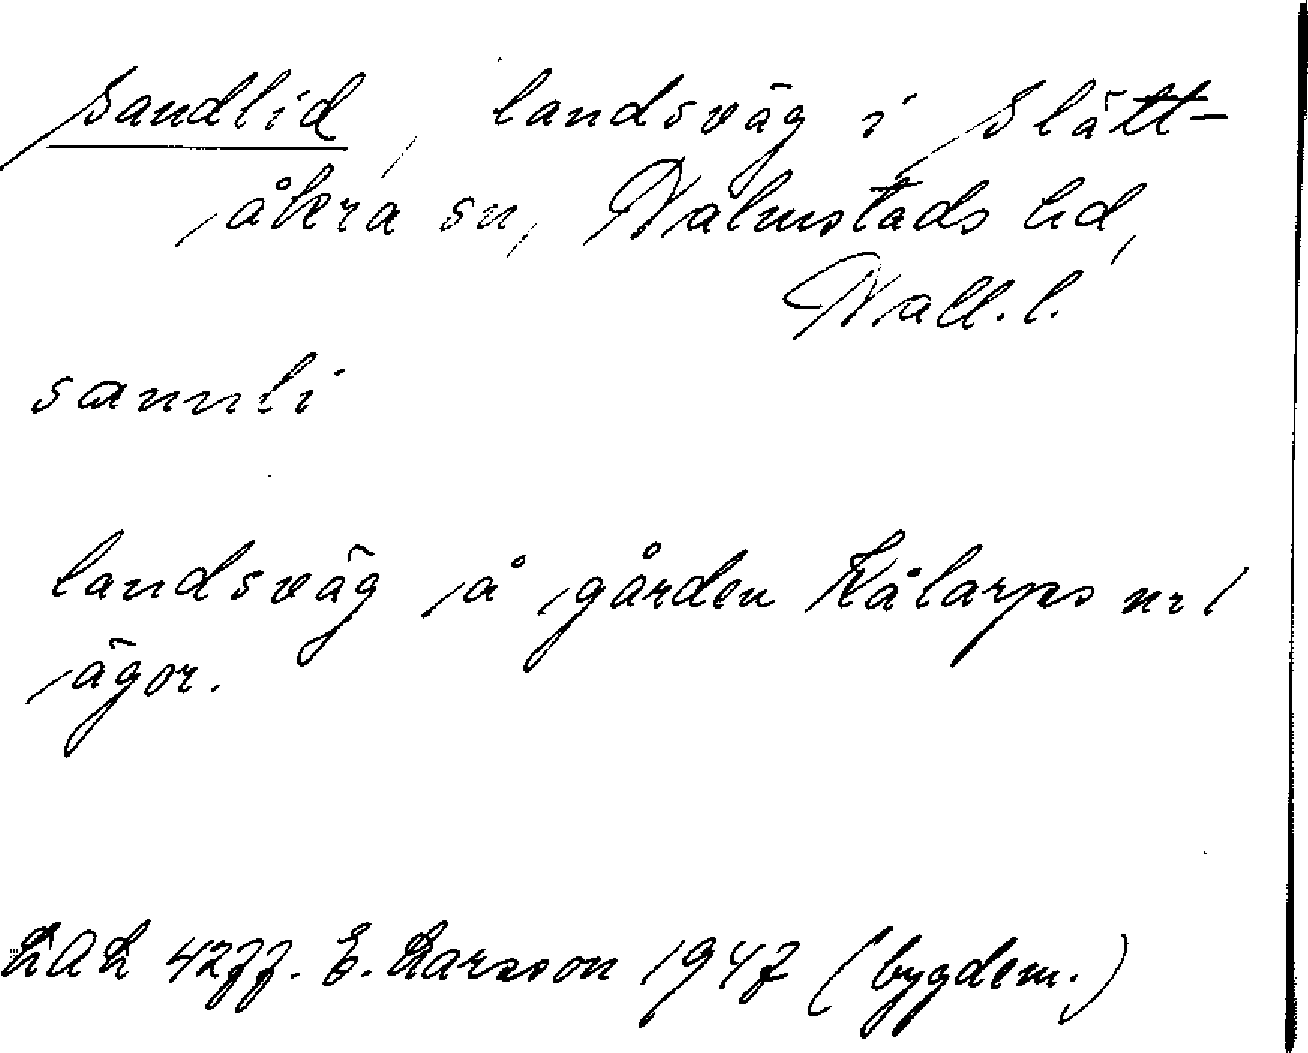 Sandlid, landsväg i Slätt-
åkra sn, Halmstads hd,
Hall.l.
sannli
landsväg å gården Kålarps nr 1
ägor.
LAL 4277. E. Larsson 1947 (bygdem.)